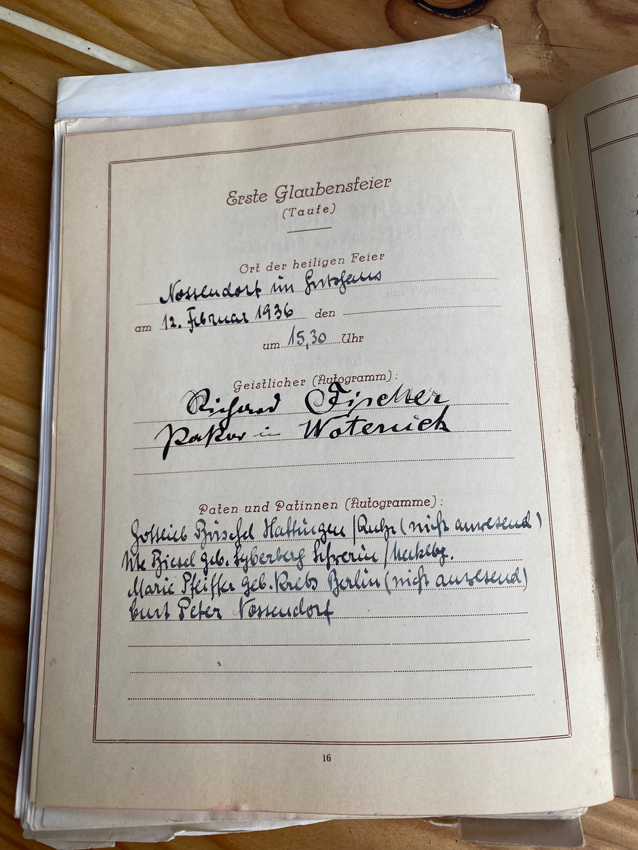 Erste Glaubensfeier
(Taufe)
Ort der heiligen Feier
Nossendorf im Gutshaus
am 12. Februar 1936 den
um 15,30 Uhr
Geistlicher (Autogramm):
Richard Fischer
Pastor in Wotenick
Paten und Patinnen (Autogramme):
Gottlieb Hattingen / Ruhr (nicht anwesend)
geb. Syberberg Schwerin / Mecklbg.
Marie Pfeiffer geb. Krebs Berlin (nicht anwesend)
Curt Peter Nossendorf
16